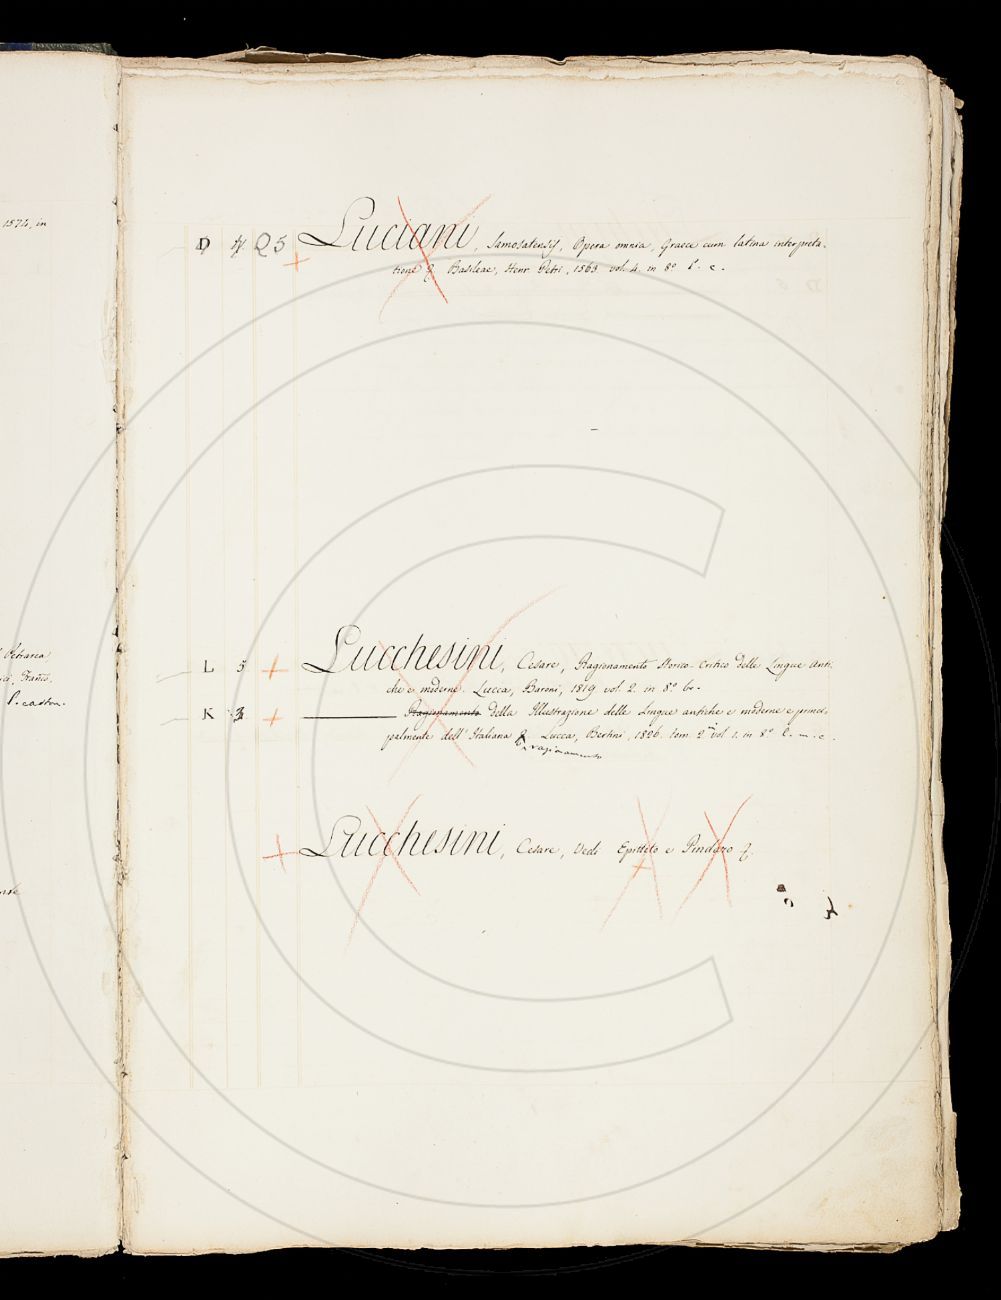 1574, in
D 4 Q5 Luciani, Samosatensis, Opera omnia, Graece cum latina interpreta-
tione & Basileae, Henr. Petri, 1563 vol. 4. in 8º P. c.
Petrarca
L 5 Lucchesini, Cesare, Ragionamento Storico-Critico delle Lingue Anti-
che e moderne. Lucca, Baroni, 1819 vol. 2. in 8º br.
K 3 Ragionamento della Illustrazione delle lingue antiche e moderne e princi-
palmente dell'Italiana & Lucca, Bertini, 1826. tom. 2 vol 1. in 8º C. m. c.
ragionamento
Lucchesini, Cesare, Vedi Epitteto e Pindaro &.